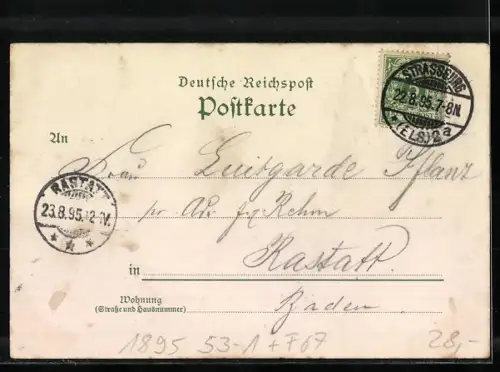 Deutsche Reichspost
Postkarte
STRASSBURG
22.8.95.7-8N.
(ELS.) 2a
An
Frau Luitgarde Pflanz
RASTATT
23.8.95.
pr. Adr.
in Rastatt.
Wohnung
(Straße und Hausnummer)
Baden.
1895 53-1 + F67
28,-